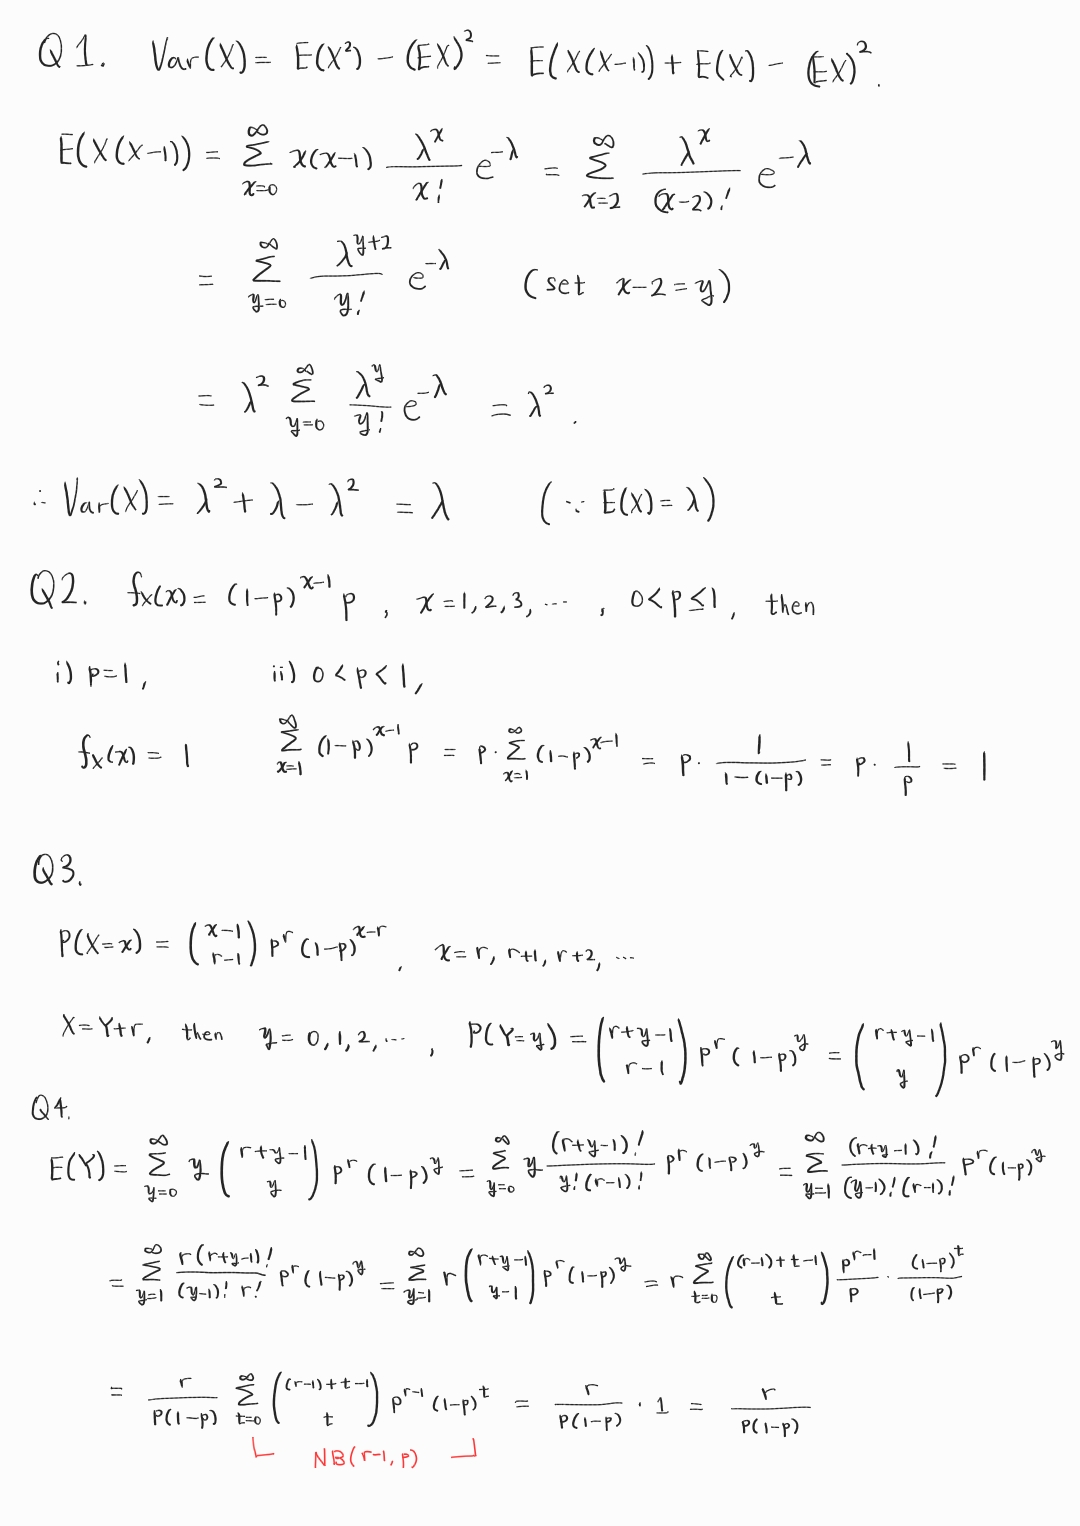 Q1. Var(X) = E(X²) − (EX)² = E(X(X−1)) + E(X) − (EX)².
E(X(X−1)) = ∑_{x=0}^{∞} x(x−1) λ^x / x! e^{−λ} = ∑_{x=2}^{∞} λ^x / (x−2)! e^{−λ}
= ∑_{y=0}^{∞} λ^{y+2} / y! e^{−λ} (set x−2=y)
= λ² ∑_{y=0}^{∞} λ^y / y! e^{−λ} = λ².
∴ Var(X) = λ² + λ − λ² = λ (∵ E(X) = λ)
Q2. f_X(x) = (1−p)^{x−1} p , x = 1,2,3, ⋯ , 0<p≤1, then
i) p=1, ii) 0<p<1,
f_X(x) = 1 ∑_{x=1}^{∞} (1−p)^{x−1} p = p · ∑_{x=1}^{∞} (1−p)^{x−1} = p · 1 / (1−(1−p)) = p · 1/p = 1
Q3.
P(X=x) = (x−1 r−1) p^r (1−p)^{x−r}, x = r, r+1, r+2, ⋯
X=Y+r, then y = 0,1,2, ⋯ , P(Y=y) = (r+y−1 r−1) p^r (1−p)^y = (r+y−1 y) p^r (1−p)^y
Q4.
E(Y) = ∑_{y=0}^{∞} y (r+y−1 y) p^r (1−p)^y = ∑_{y=0}^{∞} y (r+y−1)! / y!(r−1)! p^r (1−p)^y = ∑_{y=1}^{∞} (r+y−1)! / (y−1)!(r−1)! p^r (1−p)^y
= ∑_{y=1}^{∞} r(r+y−1)! / (y−1)! r! p^r (1−p)^y = ∑_{y=1}^{∞} r (r+y−1 y−1) p^r (1−p)^y = r ∑_{t=0}^{∞} ((r−1)+t−1 t) p^{r−1} / p · (1−p)^t / (1−p)
= r / p(1−p) ∑_{t=0}^{∞} ((r−1)+t−1 t) p^{r−1} (1−p)^t = r / p(1−p) · 1 = r / p(1−p)
NB(r−1, p)